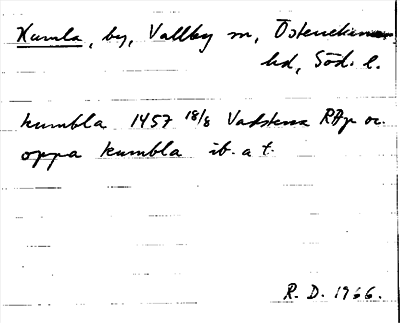 Kumla, by, Vallby sn, Österrekarne
hd, Söd. l.
kumbla 1457 18/8 Vadstena RAp or.
oppa kumbla ib. a t.
R. D. 1966.